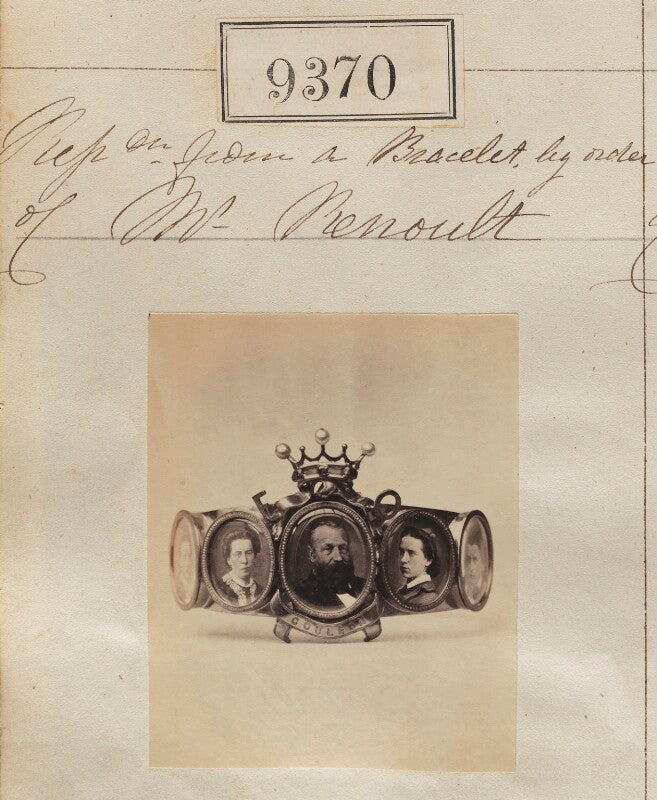 9370
Rep dn from a Bracelet, by order
of Mr Renoult